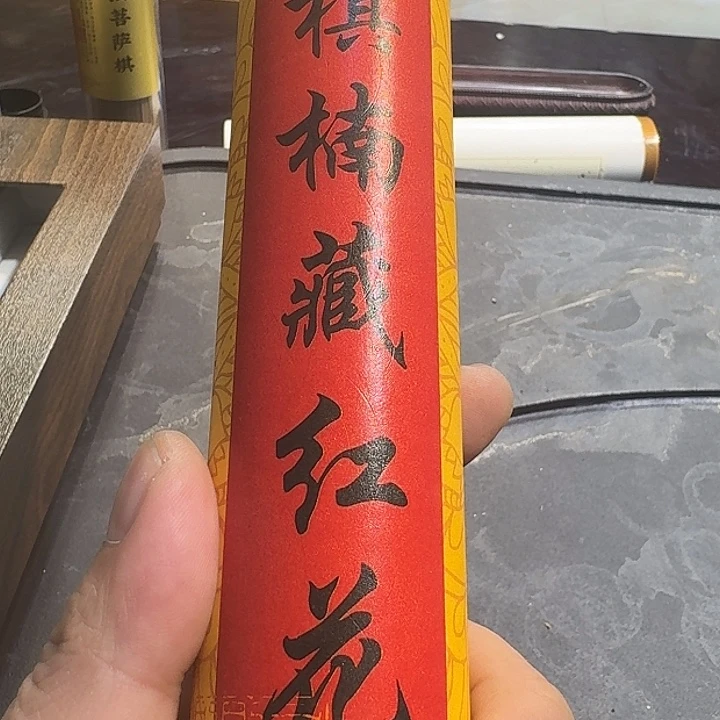 棋楠藏红花
菩萨棋